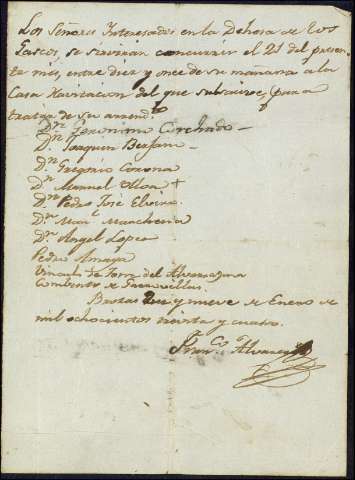 Los Señores Interesados en la Dehesa de los
Gascos, se serviran concurrir el 21 del presen-
te mes, entre diez y once de su mañana a la
Casa Havitacion del que subscrive, para
tratar de su arrend.to
D.n Geronimo Corchado
D.n Joaquin
D.n Gregorio Corona
D.n Manuel Ulloa
D.n Pedro José Elvira
D.n Man.l
D.n Angel Lopez
Pedro Amaya
de Torre del
Combento de
Brotas Diez y nueve de Enero de
mil ochocientos treinta y cuatro.
Fran.co Alvarez